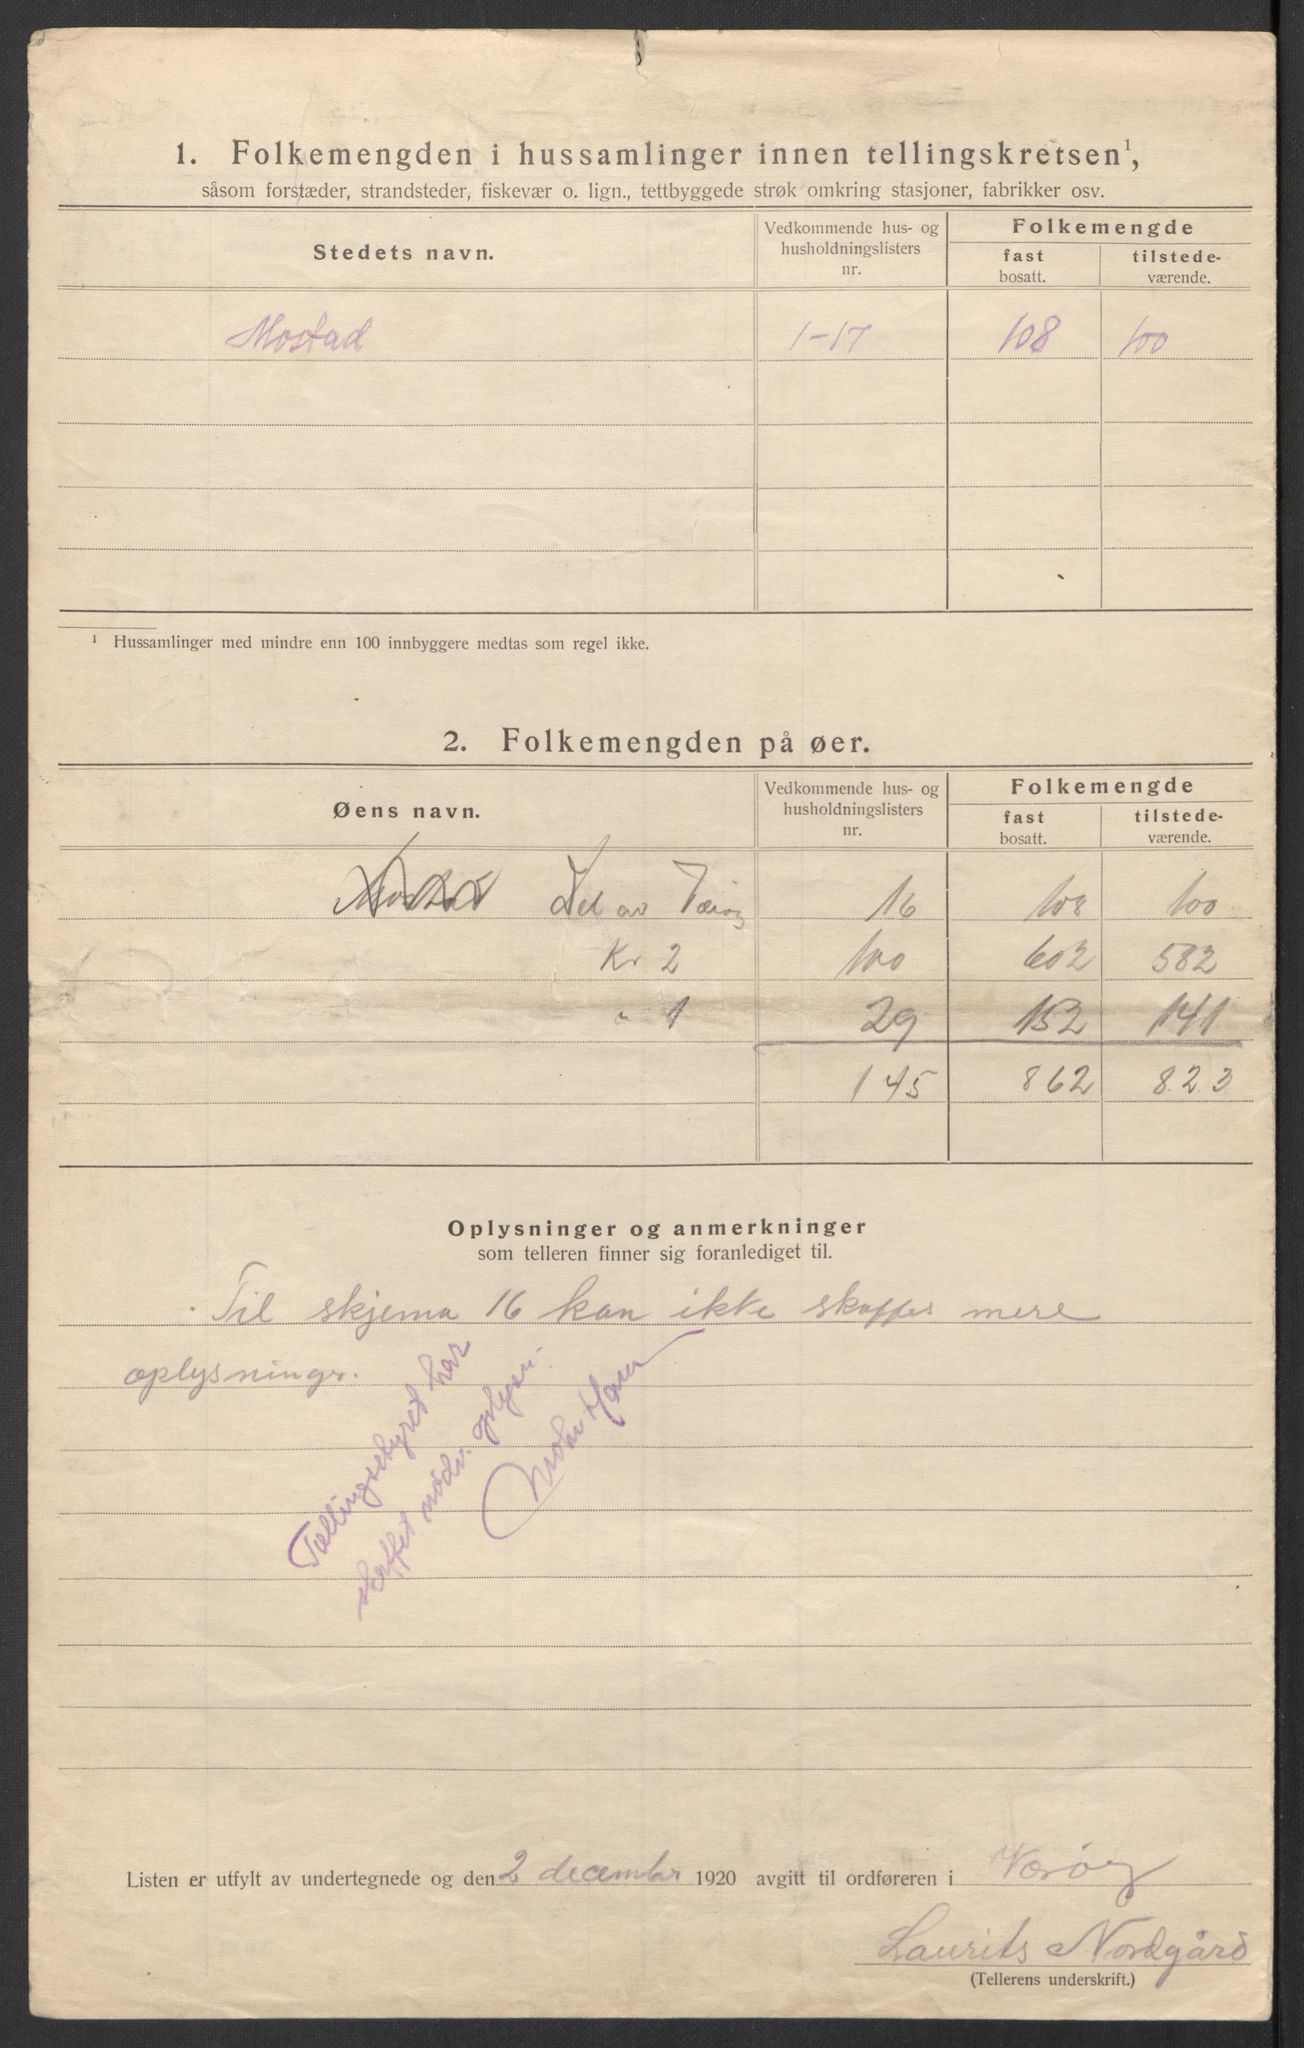 1. Folkemengden i hussamlinger innen tellingskretsen¹,
såsom forstæder, strandsteder, fiskevær o. lign., tettbyggede strøk omkring stasjoner, fabrikker osv.
Stedets navn.
Vedkommende hus- og
husholdningslisters
nr.
Folkemengde
fast
bosatt.
tilstede-
værende.
Mostad 1-17 108 100
¹ Hussamlinger med mindre enn 100 innbyggere medtas som regel ikke.
2. Folkemengden på øer.
Øens navn.
Vedkommende hus- og
husholdningslisters
nr.
Folkemengde
fast
bosatt.
tilstede-
værende.
Mostad Del av Værøy 16 108 100
Kr 2 100 602 582
" 1 29 152 141
145 862 823
Oplysninger og anmerkninger
som telleren finner sig foranlediget til.
Til skjema 16 kan ikke skaffes mere
oplysninger.
Tellingsstyret har
skaffet nødv. oplysn.
Listen er utfylt av undertegnede og den 2 december 1920 avgitt til ordføreren i Værøy
Laurits Nordgård
(Tellerens underskrift.)